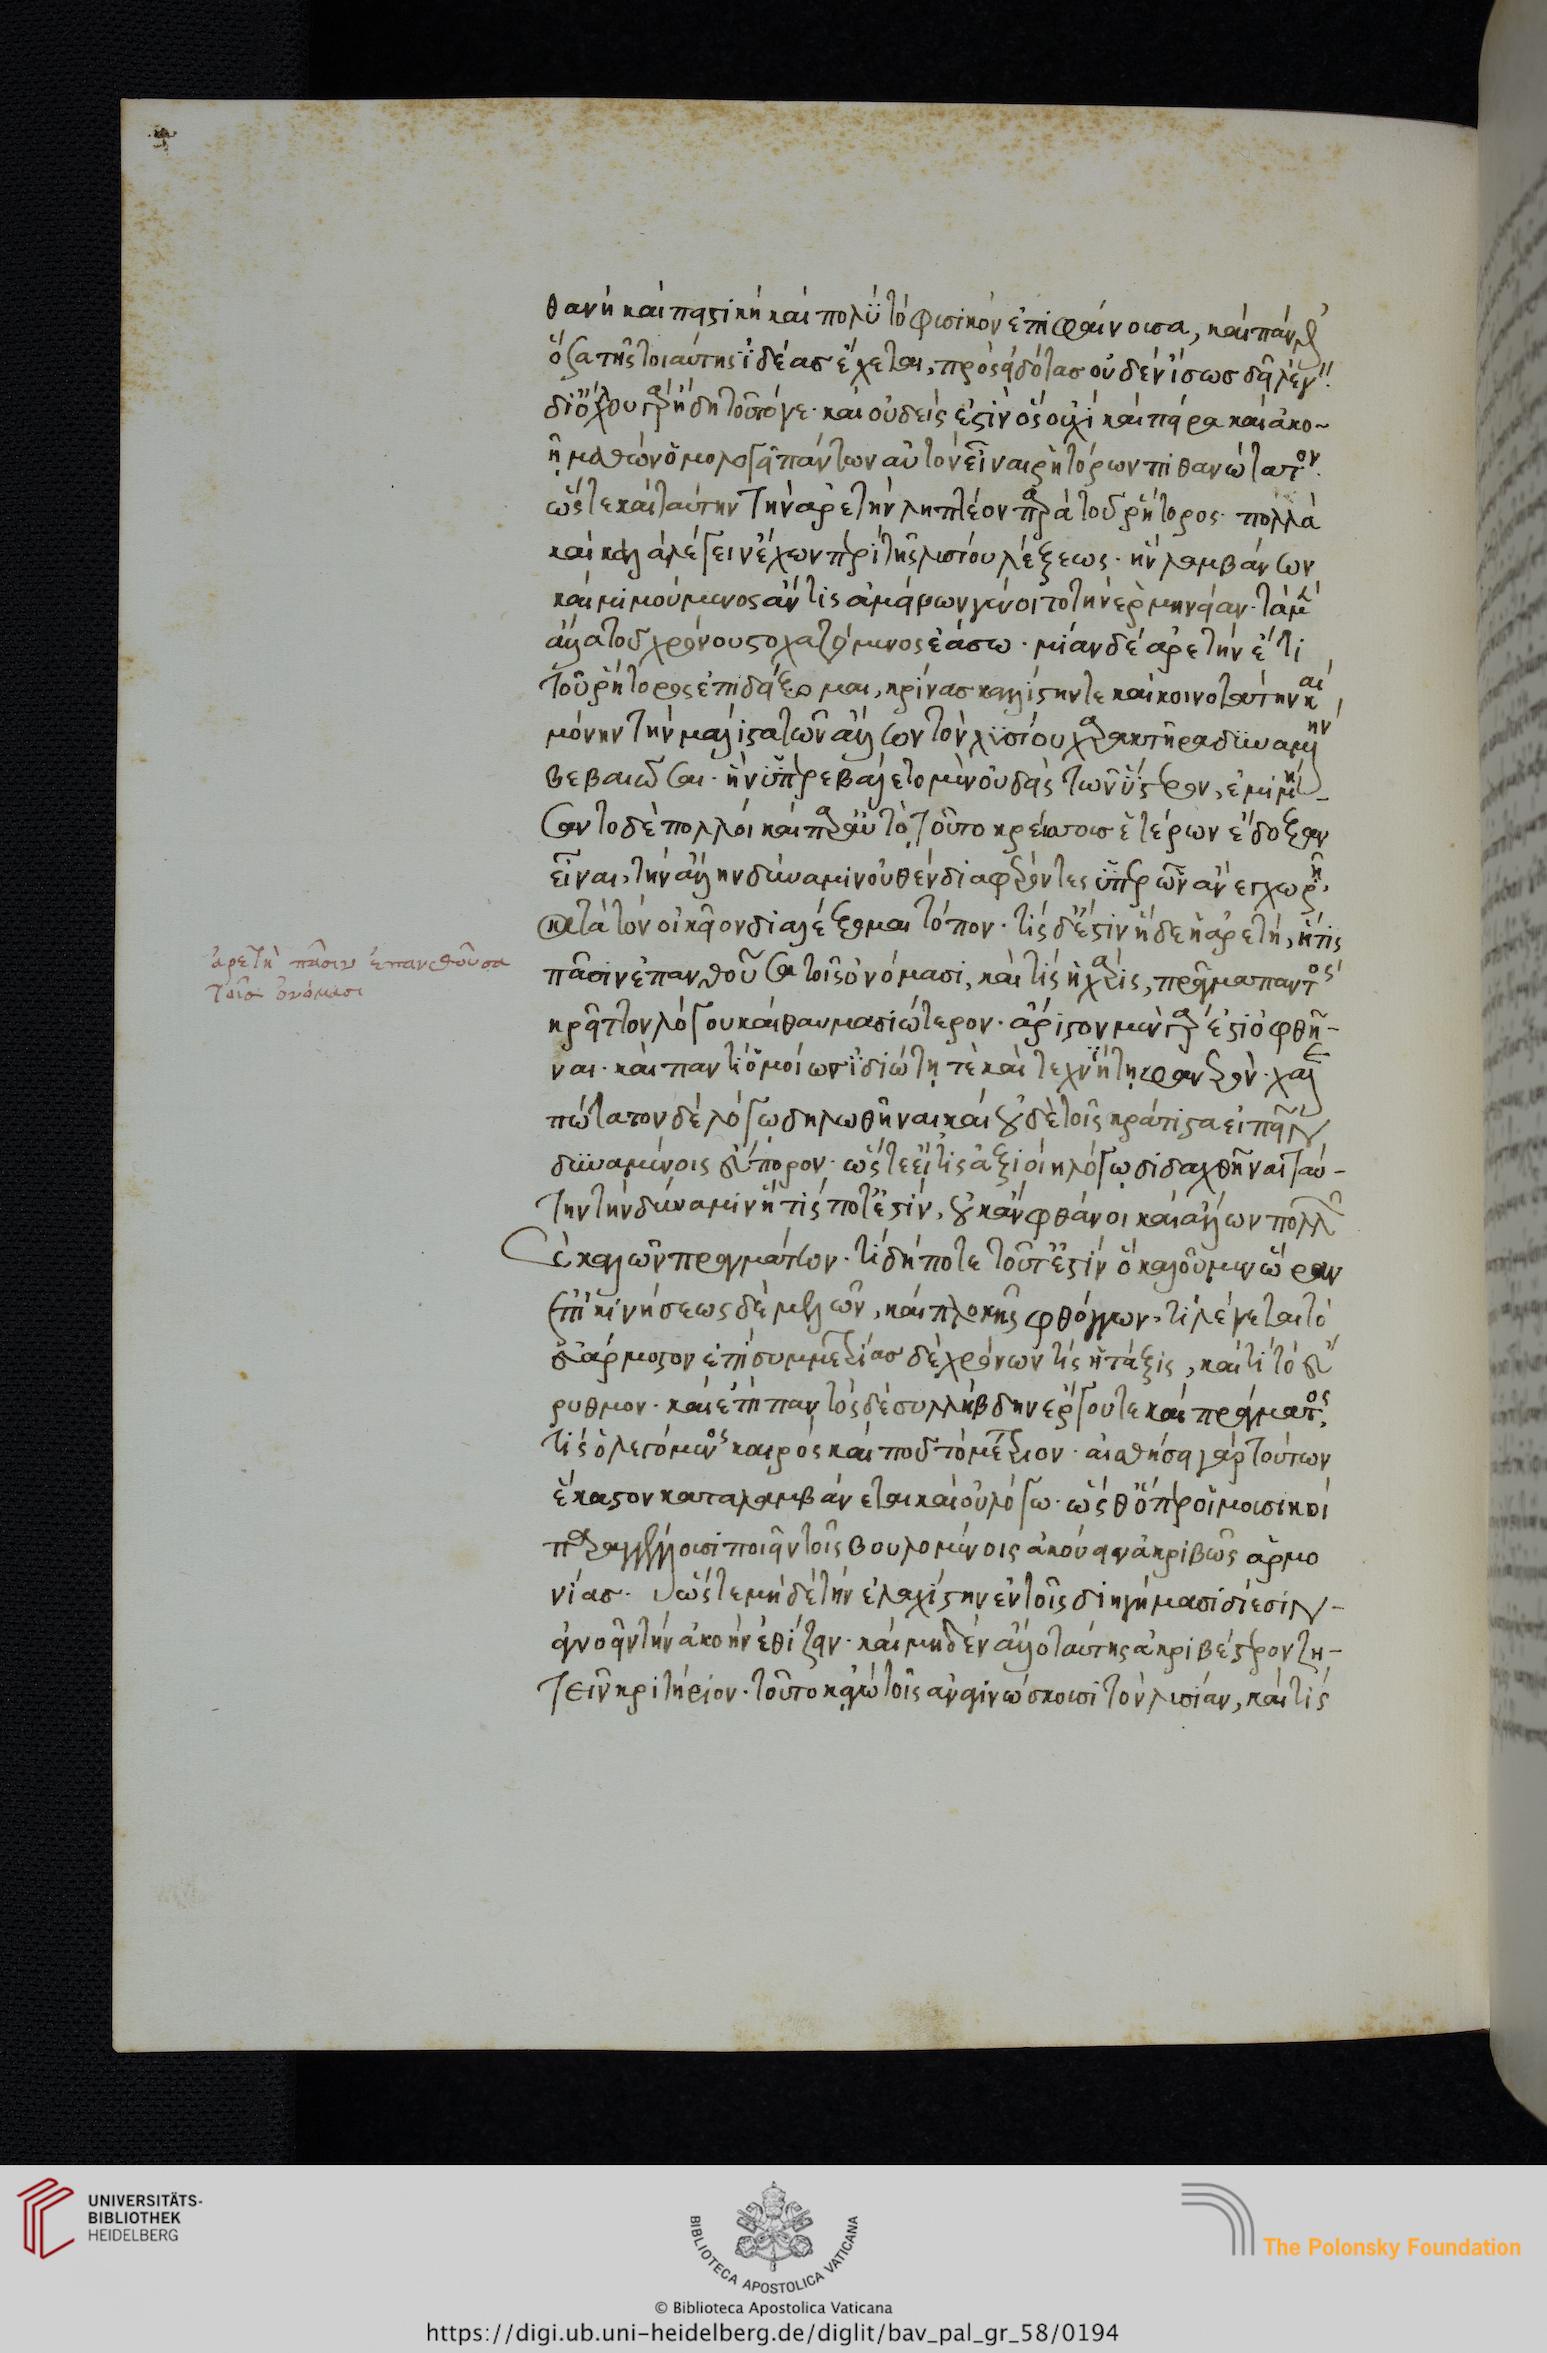 θανὴ καὶ πειστικὴ καὶ πολὺ τὸ φυσικὸν ἐπιφαίνουσα, καὶ πάνθ'
ὅσα τῆς τοιαύτης ἰδέας ἔχεται, πρὸς εἰδότας οὐδὲν ἴσως δεῖ λέγειν.
δι' ὄχλου γὰρ ἤδη τοῦτό γε. καὶ οὐδείς ἐστιν ὃς οὐχὶ καὶ πείρᾳ καὶ ἀκο-
ῇ μαθὼν ὁμολογεῖ πάντων αὐτὸν εἶναι ῥητόρων πιθανώτατον.
ὥστε καὶ ταύτην τὴν ἀρετὴν ληπτέον παρὰ τοῦ ῥήτορος. πολλὰ
καὶ καλὰ λέγειν ἔχων περὶ τῆς λυσίου λέξεως. ἣν λαμβάνων
καὶ μιμούμενος ἄν τις ἀμείνων γένοιτο τὴν ἑρμηνείαν. τὰ μὲν
ἄλλα τοῦ χρόνου στοχαζόμενος ἐάσω. μίαν δὲ ἀρετὴν ἔτι
τοῦ ῥήτορος ἐπιδείξομαι, κρίνας καλλίστην τε καὶ κοινοτάτην καὶ
μόνην τὴν μάλιστα τῶν ἄλλων τὸν λυσίου χαρακτῆρα δυναμένην
βεβαιῶσαι. ἣν ὑπερεβάλετο μὲν οὐδεὶς τῶν ὕστερον, ἐμιμή-
σαντο δὲ πολλοὶ καὶ παρ' αὐτὸ τοῦτο κρείττους ἑτέρων ἔδοξαν
εἶναι, τὴν ἄλλην δύναμιν οὐθὲν διαφέροντες ὑπὲρ ὧν ἂν ἐγχωρῇ,
κατὰ τὸν οἰκεῖον διαλέξομαι τόπον. τίς δ' ἐστὶν ἥδε ἡ ἀρετή, ἥτις
ἀρετὴ πᾶσιν ἐπανθοῦσα
τοῖς ὀνόμασι
πᾶσιν ἐπανθοῦσα τοῖς ὀνόμασι, καὶ τίς ἡ χάρις, πρᾶγμα παντὸς
κρεῖττον λόγου καὶ θαυμασιώτερον. ἄριστον μὲν γάρ ἐστι ὀφθῆ-
ναι. καὶ παντὶ ὁμοίως ἰδιώτῃ τὲ καὶ τεχνίτῃ φανερὸν. χαλε
πώτατον δὲ λόγῳ δηλωθῆναι καὶ οὐδὲ τοῖς κράτιστα εἰπεῖν
δυναμένοις εὔπορον. ὥστε εἴ τις ἀξιοίη λόγῳ διδαχθῆναι ταύ-
την τὴν δύναμιν ἥ τίς ποτ' ἐστίν, οὐκ ἂν φθάνοι καὶ ἄλλων πολλῶν
καὶ καλῶν πραγμάτων. τί δήποτε τοῦτ' ἐστὶν ὃ καλοῦμεν ὥραν
ἐπὶ κινήσεως δὲ μελῶν, καὶ πλοκῆς φθόγγων. τί λέγεται τὸ
εὐάρμοστον ἐπὶ συμμετρίας δὲ χρόνων τίς ἡ τάξις, καὶ τί τὸ εὔ
ρυθμον. καὶ ἐπὶ παντὸς δὲ συλλήβδην ἔργου τε καὶ πράγματος,
τίς ὁ λεγόμενος καιρὸς καὶ ποῦ τὸ μέτριον. αἰσθήσει γὰρ τούτων
ἕκαστον καταλαμβάνεται καὶ οὐ λόγῳ. ὥσθ' ὅπερ οἱ μουσικοὶ
παραγγέλλουσι ποιεῖν τοῖς βουλομένοις ἀκούειν ἀκριβῶς ἁρμο
νίας. ὥστε μηδὲ τὴν ἐλαχίστην ἐν τοῖς διηγήμασι δίεσιν
ἀγνοεῖν τὴν ἀκοὴν ἐθίζειν. καὶ μηδὲν ἄλλο ταύτης ἀκριβέστερον ζη-
τεῖν κριτήριον. τοῦτο κἀγὼ τοῖς ἀναγινώσκουσι τὸν λυσίαν, καὶ τίς
UNIVERSITÄTS-
BIBLIOTHEK
HEIDELBERG
BIBLIOTECA APOSTOLICA VATICANA
The Polonsky Foundation
© Biblioteca Apostolica Vaticana
https://digi.ub.uni-heidelberg.de/diglit/bav_pal_gr_58/0194